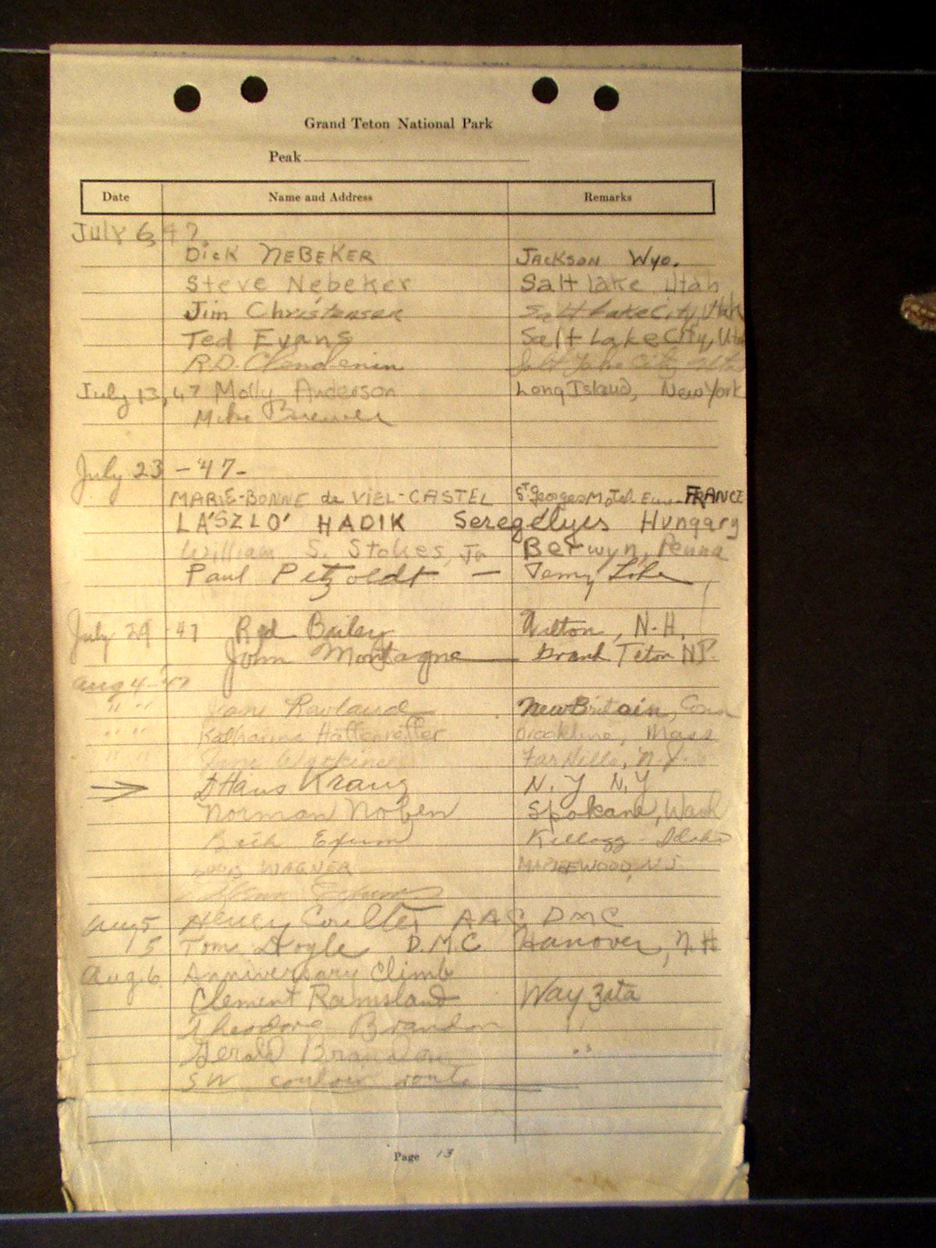 Grand Teton National Park
Peak
Date Name and Address Remarks
July 6, 47
Dick NEBEKER JACKSON WYO.
Steve Nebeker Salt Lake, Utah
Jim Christensen Salt Lake City, Utah
Ted Evans Salt Lake City, Utah
R.D. Clendenin Salt Lake City Utah
July 13, 47 Molly Anderson Long Island, New York
Mike Brewer
July 23 - '47 -
MARIE-BONNE de VIEL-CASTEL St Georges Motel Eure FRANCE
LÁSZLÓ HADIK Seregélyes Hungary
William S. Stokes, Jr Berwyn, Penna
Paul Petzoldt — Jenny Lake
July 29 '47 Red Bailey Wilton, N.H.
John Montagne Grand Teton N.P.
Aug 4-'47
" " Jane Rowland New Britain, Conn
" " Katharine Haffenreffer Brookline, Mass
" " Far Hills, N.J.
→ Hans Kraus N.Y N.Y
Norman Spokane, Wash
Beth Exum Kellogg - Idaho
LOUIS WAGNER MAPLEWOOD, N.J.
Glenn Exum
Aug 5 Henry Coulter AAC DMC
" 5 Tom Doyle D.M.C Hanover, N.H
Aug. 6 Anniversary Climb
Clement Ramsland Wayzata
Theodore Brandon "
Gerald Brandon "
SW couloir route
Page 13